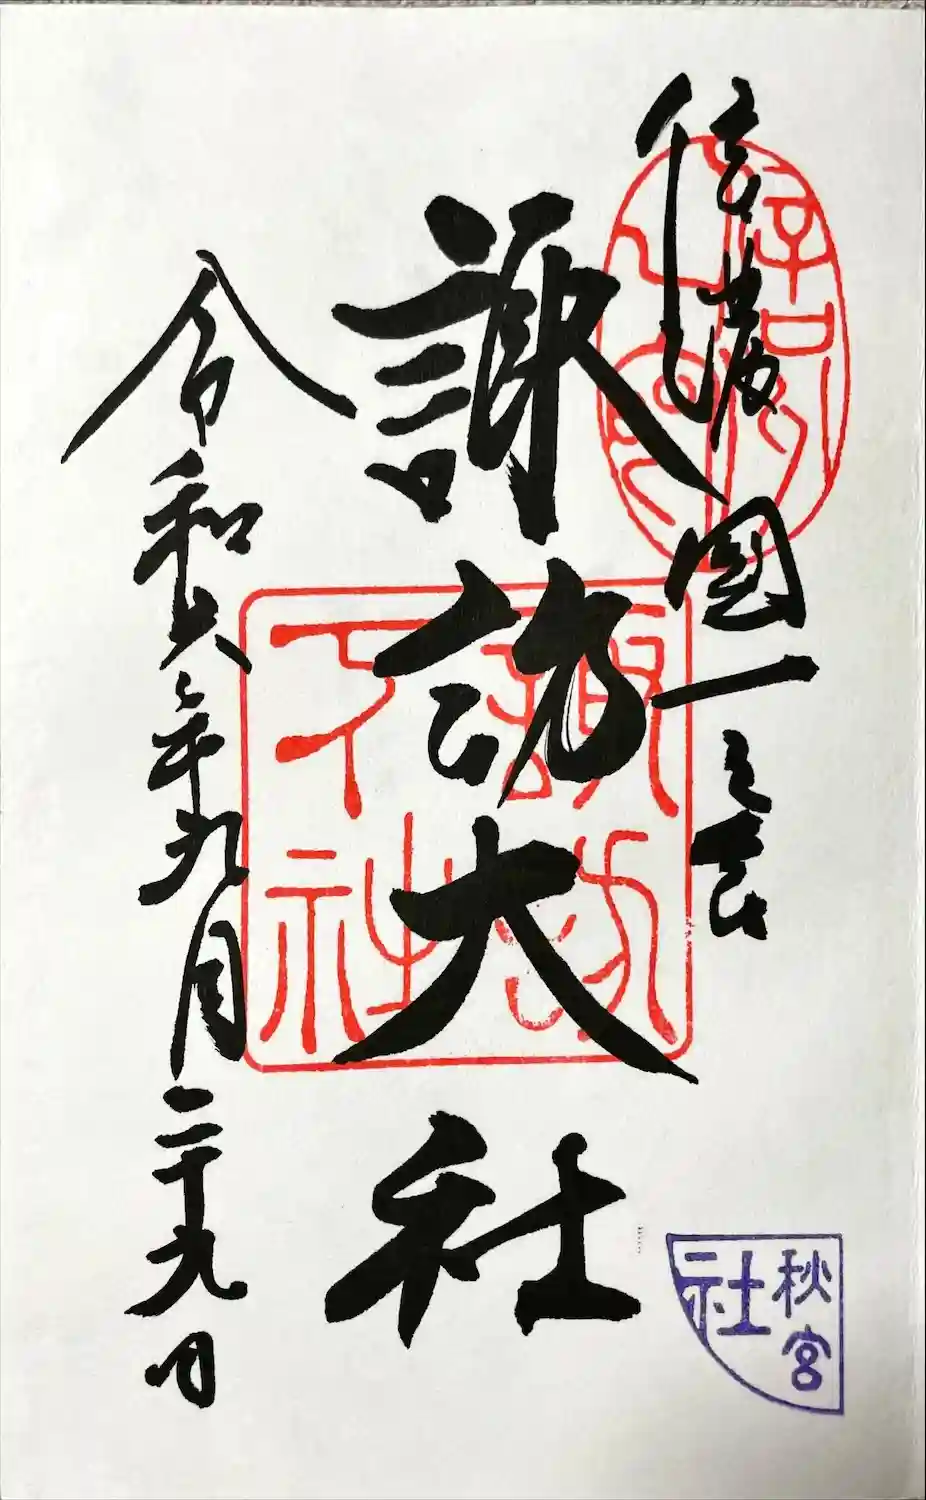 信濃國一之宮
諏訪大社
令和六年九月二十九日
諏訪
下社
秋宮
社